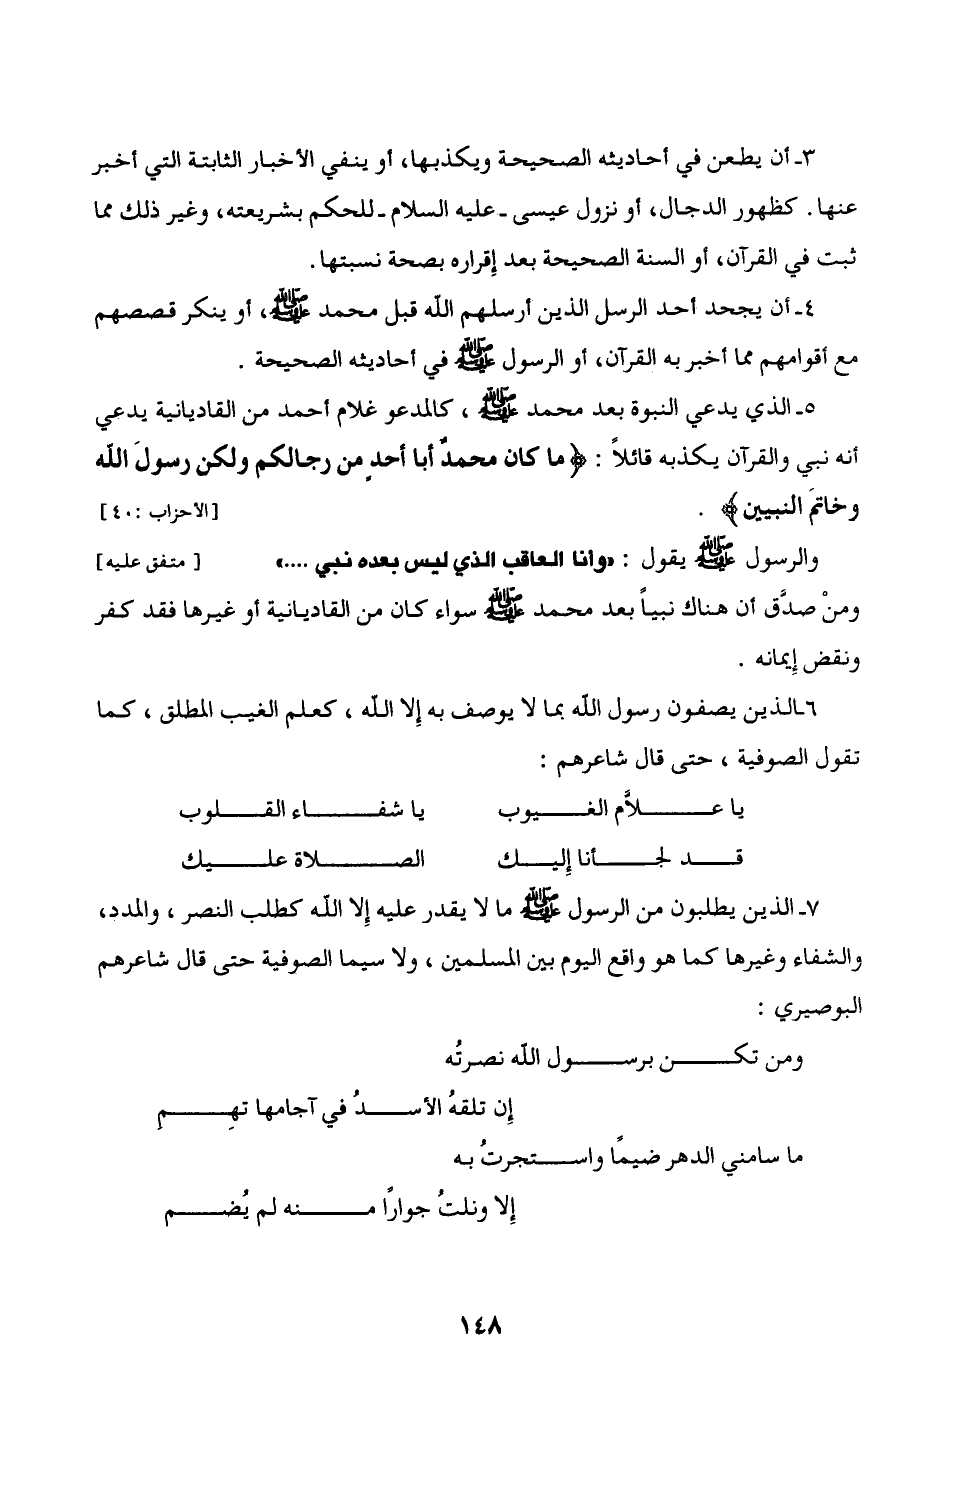 ٣ـ أن يطعن في أحاديثه الصحيحة ويكذبها، أو ينفي الأخبار الثابتة التي أخبر
عنها. كظهور الدجال، أو نزول عيسى ـ عليه السلام ـ للحكم بشريعته، وغير ذلك مما
ثبت في القرآن، أو السنة الصحيحة بعد إقراره بصحة نسبتها.
٤ـ أن يجحد أحد الرسل الذين أرسلهم الله قبل محمد ﷺ، أو ينكر قصصهم
مع أقوامهم مما أخبر به القرآن، أو الرسول ﷺ في أحاديثه الصحيحة .
٥ـ الذي يدعي النبوة بعد محمد ﷺ ، كالمدعو غلام أحمد من القاديانية يدعي
أنه نبي والقرآن يكذبه قائلاً : ﴿ ما كان محمدٌ أبا أحدٍ من رجالكم ولكن رسولَ الله
وخاتمَ النبيين﴾ . [الأحزاب :٤٠]
والرسول ﷺ يقول : «وأنا العاقب الذي ليس بعده نبي ....» [ متفق عليه]
ومنْ صدَّق أن هناك نبياً بعد محمد ﷺ سواء كان من القاديانية أو غيرها فقد كفر
ونقض إيمانه .
٦ـالذين يصفون رسول الله بما لا يوصف به إلا الله ، كعلم الغيب المطلق ، كما
تقول الصوفية ، حتى قال شاعرهم :
يا عـــــلاَّم الغـــيوب يا شفـــــاء القـــلوب
قـــد لجـــأنا إليـــك الصـــــلاة علـــيك
٧ـ الذين يطلبون من الرسول ﷺ ما لا يقدر عليه إلا الله كطلب النصر ، والمدد،
والشفاء وغيرها كما هو واقع اليوم بين المسلمين ، ولا سيما الصوفية حتى قال شاعرهم
البوصيري :
ومن تكـــــن برســـــول الله نصرتُه
إن تلقهُ الأســـدُ في آجامها تهِـــــمِ
ما سامني الدهر ضيمًا واســـتجرتُ به
إلا ونلتُ جوارًا مـــــنه لم يُضـــم
١٤٨